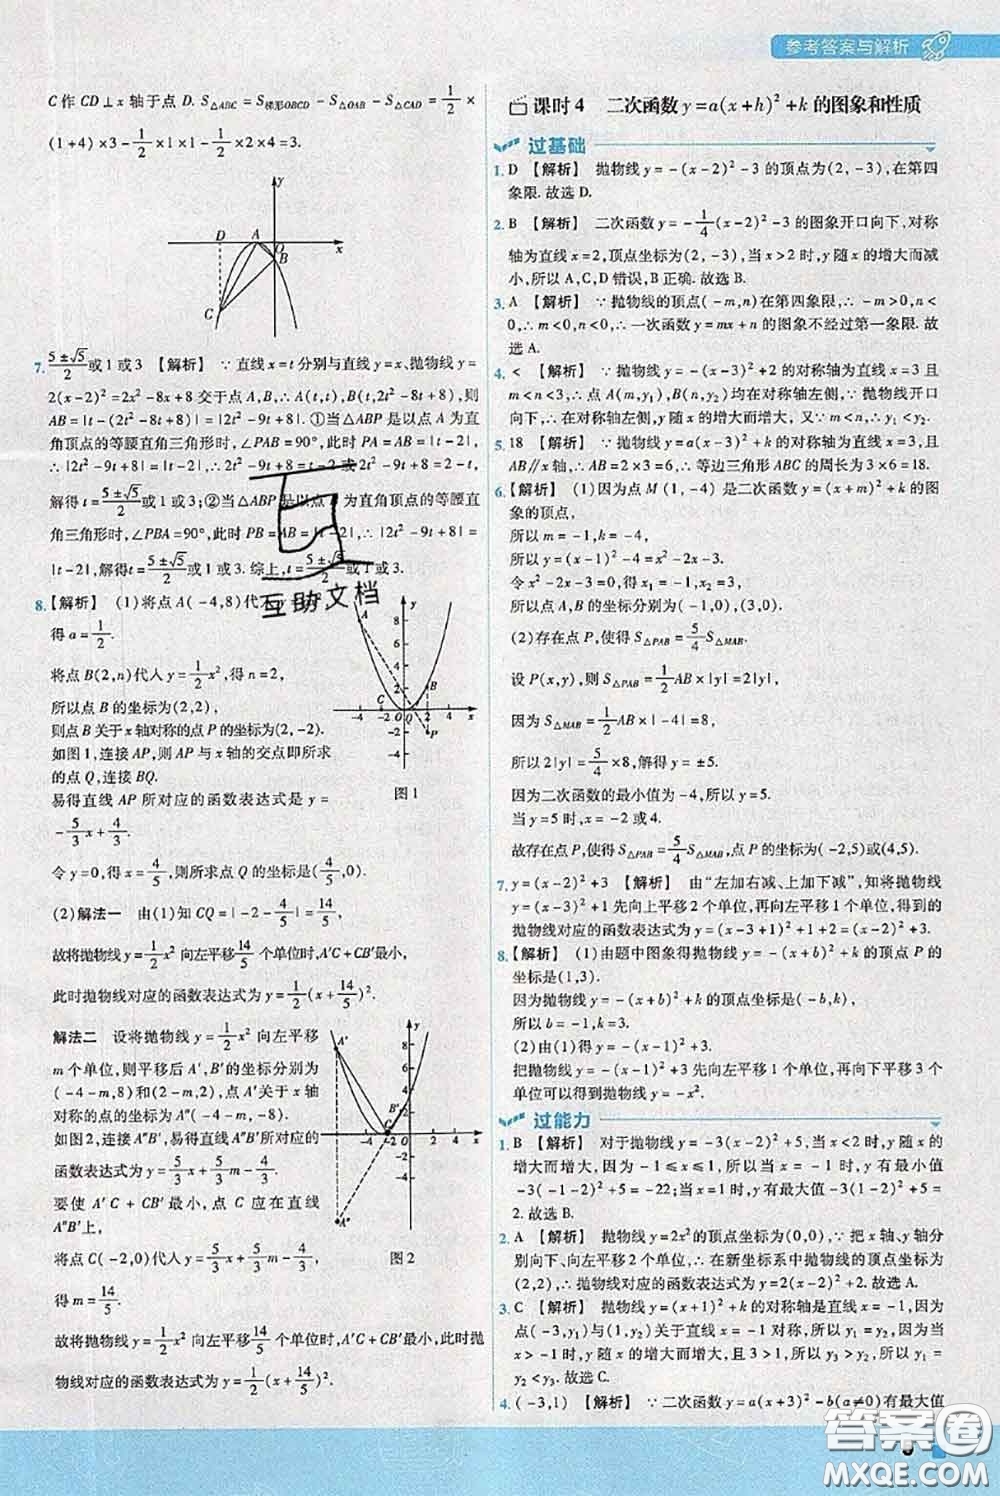 参考答案与解析
C作CD⊥x轴于点D. S△ABC=S梯形OBCD-S△OAB-S△CAD=1/2
×(1+4)×3-1/2×1×1-1/2×2×4=3.
7. (5±√5)/2或1或3 【解析】 ∵直线x=t分别与直线y=x、抛物线y=
2(x-2)²=2x²-8x+8交于点A,B,∴A(t,t),B(t,2t²-8t+8),则
AB=|t-(2t²-8t+8)|=|2t²-9t+8|.①当△ABP是以点A为直
角顶点的等腰直角三角形时,∠PAB=90°,此时PA=AB=|t-2|,
∴|2t²-9t+8|=|t-2|,∴2t²-9t+8=t-2或2t²-9t+8=2-t,
解得t=(5±√5)/2或1或3;②当△ABP是以点B为直角顶点的等腰直
角三角形时,∠PBA=90°,此时PB=AB=|t-2|,∴|2t²-9t+8|=
|t-2|,解得t=(5±√5)/2或1或3.综上,t=(5±√5)/2或1或3.
互助文档
8.【解析】 (1)将点A(-4,8)代入y=ax²,
得a=1/2.
将点B(2,n)代入y=1/2x²,得n=2,
所以点B的坐标为(2,2),
则点B关于x轴对称的点P的坐标为(2,-2).
如图1,连接AP,则AP与x轴的交点即所求
的点Q,连接BQ.
易得直线AP所对应的函数表达式是y=
-5/3x+4/3.
令y=0,得x=4/5,则所求点Q的坐标是(4/5,0).
图1
(2)解法一 由(1)知CQ=|-2-4/5|=14/5,
故将抛物线y=1/2x²向左平移14/5个单位时,A'C+CB'最小,
此时抛物线对应的函数表达式为y=1/2(x+14/5)².
解法二 设将抛物线y=1/2x²向左平移
m个单位,则平移后A',B'的坐标分别为
(-4-m,8)和(2-m,2),点A'关于x轴
对称的点的坐标为A"(-4-m,-8).
如图2,连接A"B',易得直线A"B'对应的
函数表达式为y=5/3x+5/3m-4/3.
要使A'C+CB'最小,点C应在直线
A"B'上,
将点C(-2,0)代入y=5/3x+5/3m-4/3,
得m=14/5.
图2
故将抛物线y=1/2x²向左平移14/5个单位时,A'C+CB'最小,此时抛
物线对应的函数表达式为y=1/2(x+14/5)².
课时4 二次函数y=a(x+h)²+k的图象和性质
过基础
1. D 【解析】 抛物线y=-(x-2)²-3的顶点为(2,-3),在第四
象限.故选D.
2. B 【解析】 二次函数y=-1/4(x-2)²-3的图象开口向下,对称
轴为直线x=2,顶点坐标为(2,-3),当x>2时,y随x的增大而减
小,所以A,C,D错误,B正确.故选B.
3. A 【解析】 ∵抛物线的顶点(-m,n)在第四象限,∴-m>0,n<
0,∴m<0,n<0,∴一次函数y=mx+n的图象不经过第一象限.故
选A.
4. < 【解析】 ∵抛物线y=-(x-3)²+2的对称轴为直线x=3且
m<n<3,∴点A(m,y₁),B(n,y₂)均在对称轴左侧,∵抛物线开口
向下,∴在对称轴左侧,y随x的增大而增大,又∵m<n,∴y₁<y₂.
5. 18 【解析】 ∵抛物线y=a(x-3)²+k的对称轴为直线x=3,且
AB∥x轴,∴AB=2×3=6,∴等边三角形ABC的周长为3×6=18.
6.【解析】 (1)因为点M(1,-4)是二次函数y=(x+m)²+k的图
象的顶点,
所以m=-1,k=-4,
所以y=(x-1)²-4=x²-2x-3.
令x²-2x-3=0,得x₁=-1,x₂=3,
所以点A,B的坐标分别为(-1,0),(3,0).
(2)存在点P,使得S△PAB=5/4S△MAB.
设P(x,y),则S△PAB=1/2AB×|y|=2|y|,
因为S△MAB=1/2AB×|-4|=8,
所以2|y|=5/4×8,解得y=±5.
因为二次函数的最小值为-4,所以y=5.
当y=5时,x=-2或4.
故存在点P,使得S△PAB=5/4S△MAB,点P的坐标为(-2,5)或(4,5).
7. y=(x-2)²+3 【解析】 由“左加右减、上加下减”,知将抛物线
y=(x-3)²+1先向上平移2个单位,再向左平移1个单位,得到的
抛物线对应的函数表达式为y=(x-3+1)²+1+2=(x-2)²+3.
8.【解析】 (1)由题中图象得抛物线y=-(x+b)²+k的顶点P的
坐标是(1,3).
因为抛物线y=-(x+b)²+k的顶点坐标是(-b,k),
所以b=-1,k=3.
(2)由(1)得y=-(x-1)²+3.
把抛物线y=-(x-1)²+3先向左平移1个单位,再向下平移3个
单位可以得到抛物线y=-x².
过能力
1. B 【解析】 对于抛物线y=-3(x-2)²+5,当x<2时,y随x的
增大而增大,因为-1≤x≤1,所以当x=-1时,y有最小值
-3(-1-2)²+5=-22;当x=1时,y有最大值-3(1-2)²+5=
2.故选B.
2. A 【解析】 抛物线y=2x²的顶点坐标为(0,0),∵把x轴、y轴分
别向下、向左平移2个单位,∴在新坐标系中抛物线的顶点坐标为
(2,2),∴抛物线对应的函数表达式为y=2(x-2)²+2.故选A.
3. C 【解析】 ∵抛物线y=(x+1)²+k的对称轴是直线x=-1,
点(-3,y₁)与(1,y₂)关于直线x=-1对称,所以y₁=y₂,因为当
x>-1时,y随x的增大而增大,且3>1,所以y₂<y₃,所以y₁=
y₂<y₃.故选C.
4. (-3,1) 【解析】 ∵二次函数y=a(x+3)²-b(a≠0)有最大值
答案圈
MXQE.COM